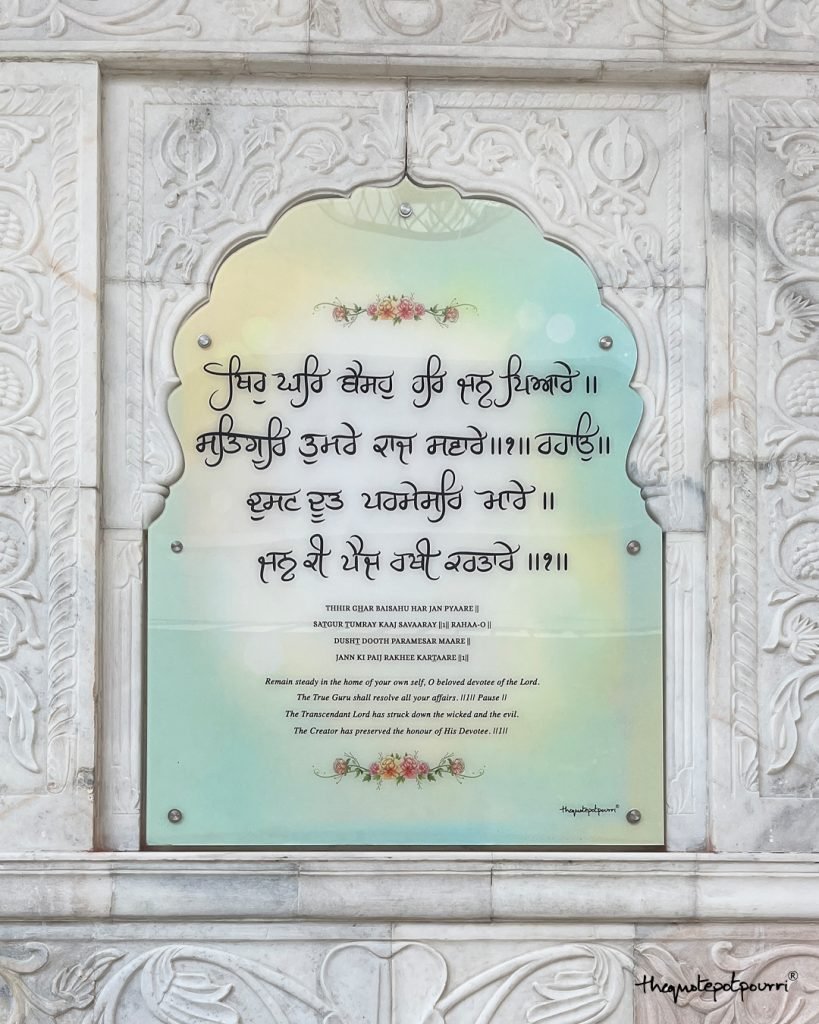 ਥਿਰੁ ਘਰਿ ਬੈਸਹੁ ਹਰਿ ਜਨ ਪਿਆਰੇ ॥
ਸਤਿਗੁਰਿ ਤੁਮਰੇ ਕਾਜ ਸਵਾਰੇ ॥੧॥ ਰਹਾਉ ॥
ਦੁਸਟ ਦੂਤ ਪਰਮੇਸਰਿ ਮਾਰੇ ॥
ਜਨ ਕੀ ਪੈਜ ਰਖੀ ਕਰਤਾਰੇ ॥੧॥
THHIR GHAR BAISAHU HAR JAN PYAARE ||
SATGUR TUMRAY KAAJ SAVAARAY ||1|| RAHAA-O ||
DUSHT DOOTH PARAMESAR MAARE ||
JANN KI PAIJ RAKHEE KARTAARE ||1||
Remain steady in the home of your own self, O beloved devotee of the Lord.
The True Guru shall resolve all your affairs. ||1|| Pause ||
The Transcendant Lord has struck down the wicked and the evil.
The Creator has preserved the honour of His Devotee. ||1||
thequotepotpourri®
thequotepotpourri®